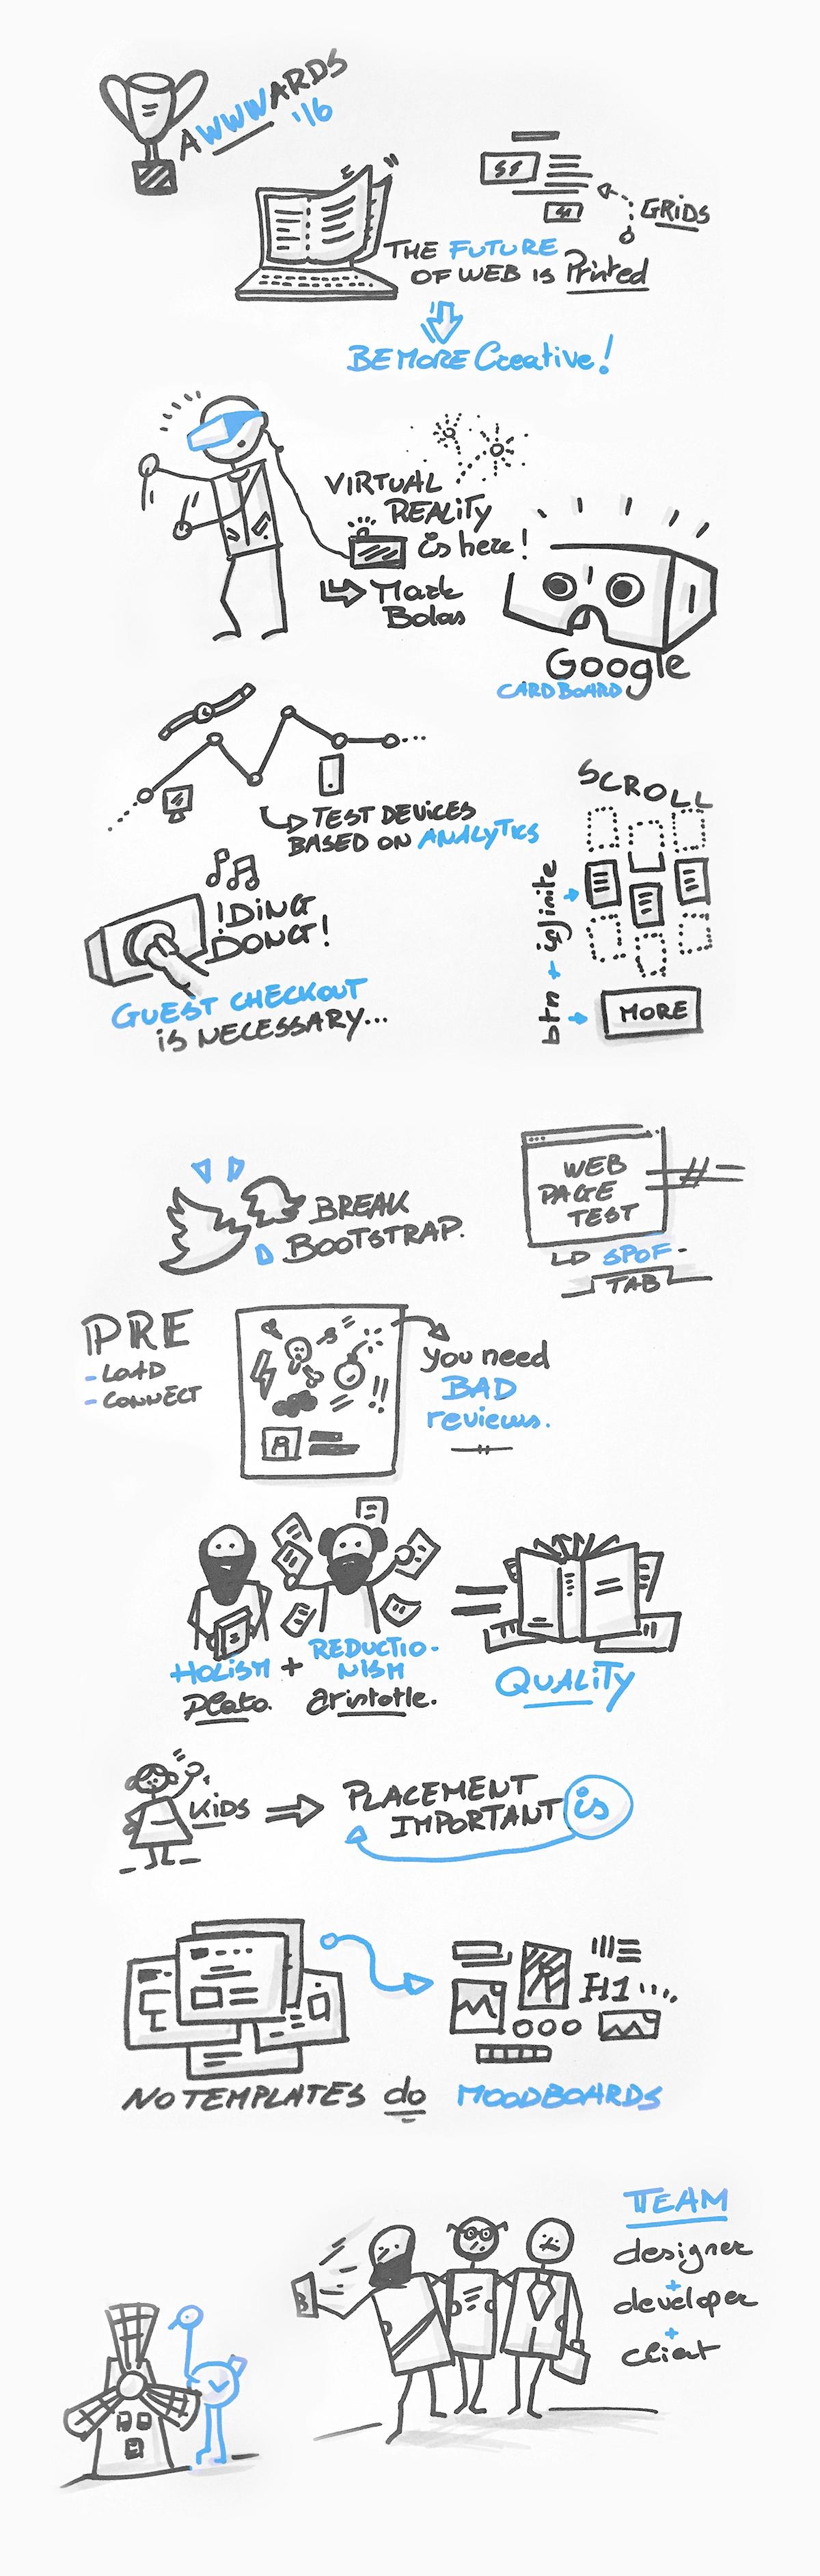 AWWWARDS
'16
GRIDS
THE FUTURE
OF WEB IS Printed
BE MORE Creative!
VIRTUAL
REALITY
is here!
Mark
Bolas
Google
CARDBOARD
TEST DEVICES
BASED ON ANALYTICS
SCROLL
btn + infinite
MORE
!DING
DONG!
GUEST CHECKOUT
IS NECESSARY...
BREAK
BOOTSTRAP.
WEB
PAGE
TEST
SPOF-
TAB
PRE
- LOAD
- CONNECT
you need
BAD
reviews.
HOLISM + REDUCTIO-
NISM
Plato. Aristotle.
= QUALITY
KIDS
PLACEMENT
IMPORTANT is
H1
NO TEMPLATES do MOODBOARDS
TEAM
designer
+
developer
+
client